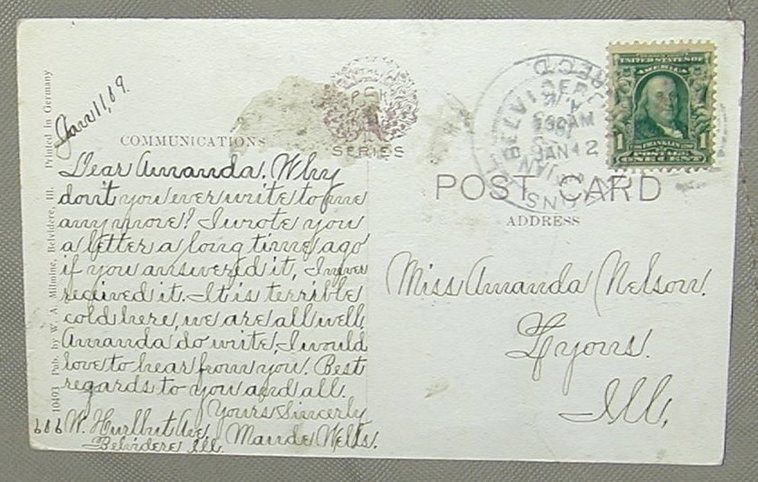 10493 Pub. by W. A. Milmine, Belvidere, Ill. Printed in Germany
Jan 11, 09.
COMMUNICATIONS
Dear Amanda. Why
don't you ever write to me
any more? I wrote you
a letter a long time ago
if you answered it, I never
recieved it. It is terrible
cold here, we are all well,
Amanda do write, I would
love to hear from you. Best
regards to you and all.
Yours Sincerly
Maude Wells.
606 W. Hurlbut Ave,
Belvidere Ill.
SERIES
REC'D
BELVIDERE
AM
JAN 12
UNITED STATES OF
AMERICA
1
1
FRANKLIN
ONE CENT
POST CARD
ADDRESS
Miss Amanda Nelson.
Lyons.
Ill,